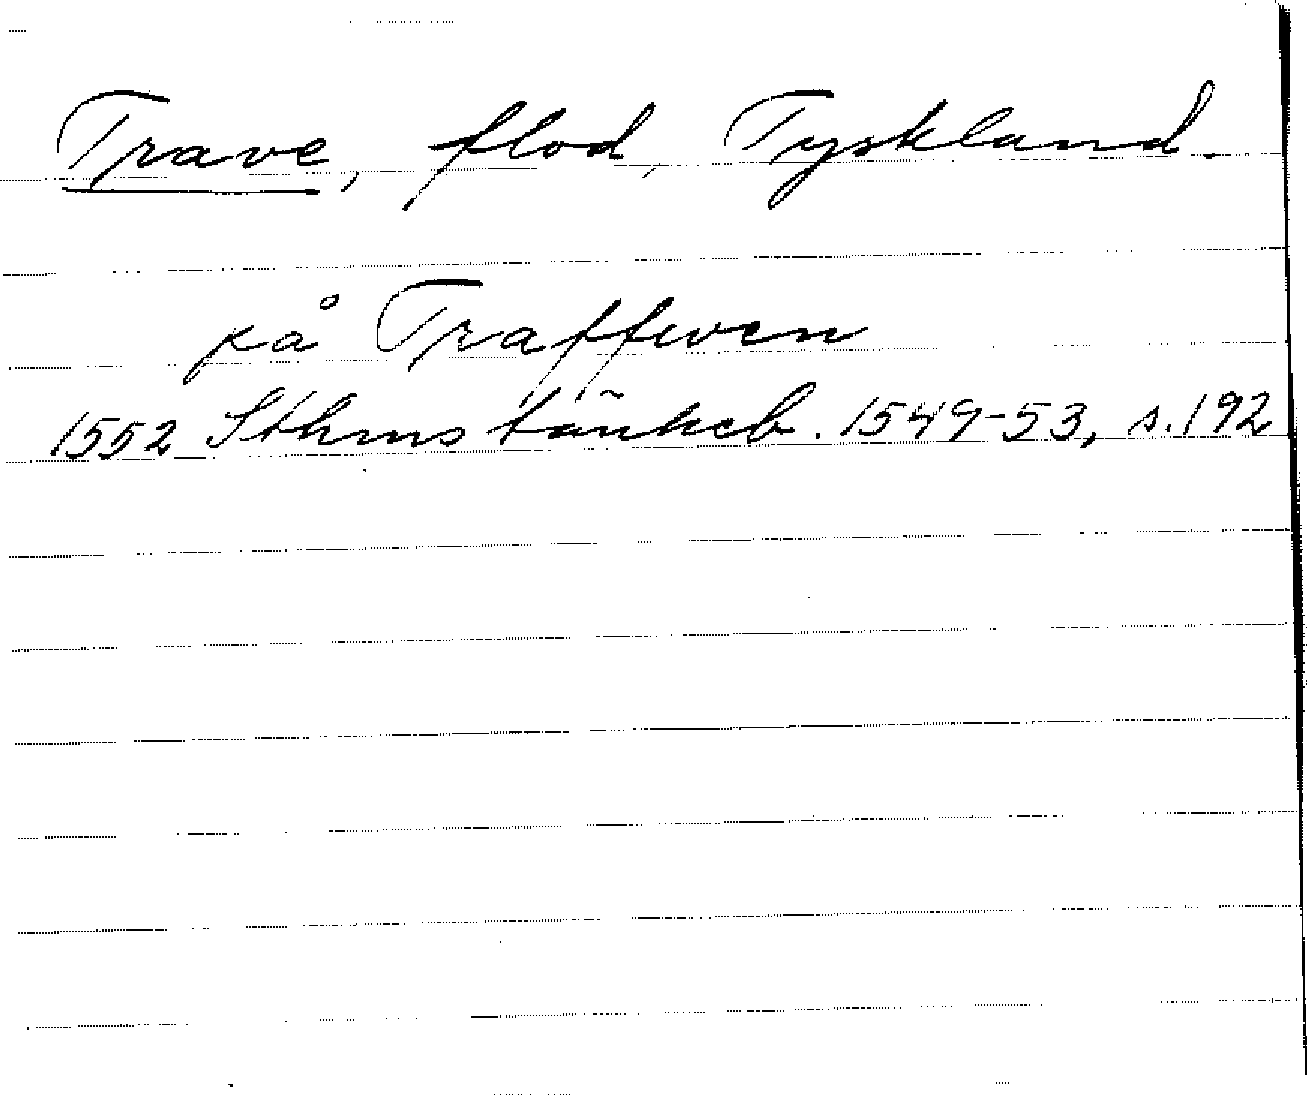 Trave, flod, Tyskland.
på Traffwen
1552 Sthms tänkeb. 1549-53, s. 192